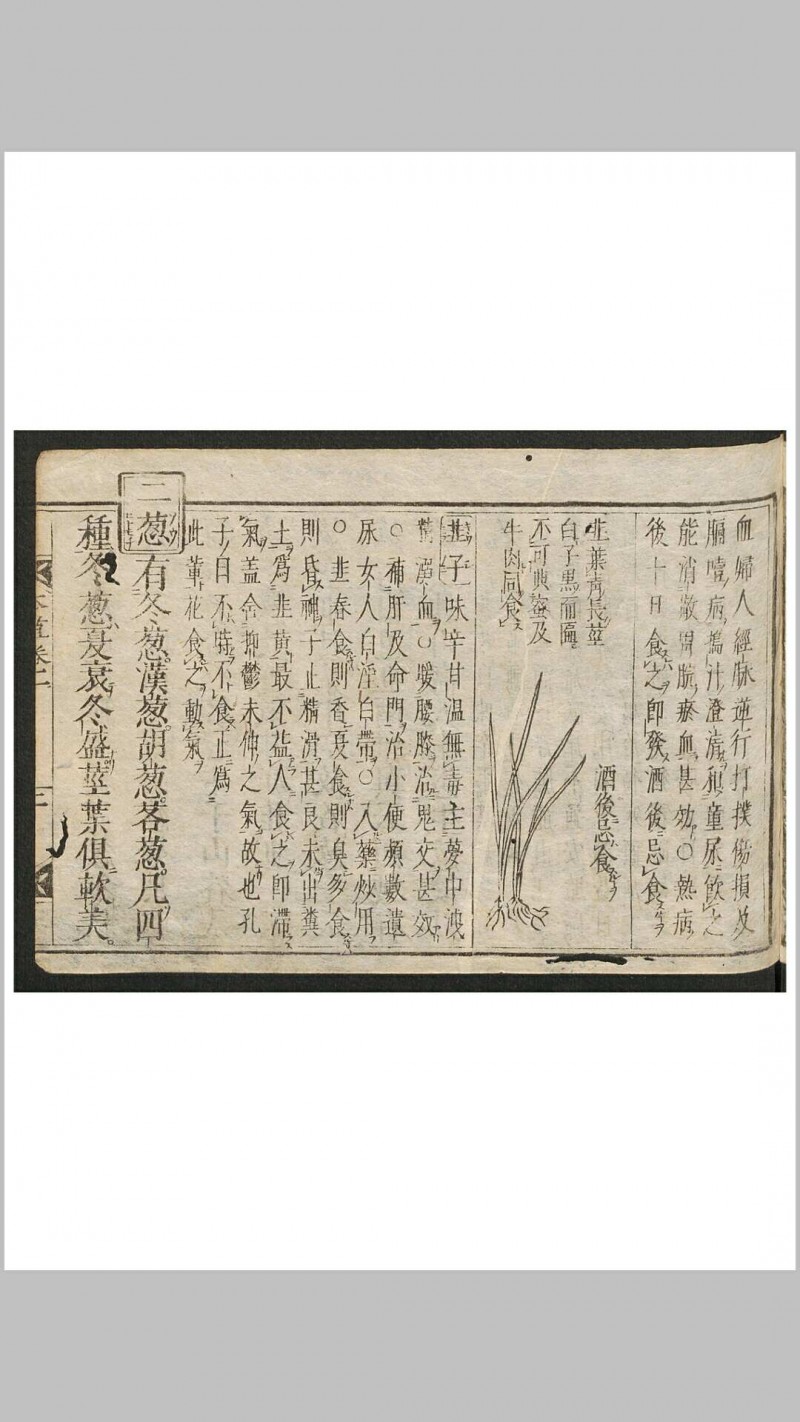 血婦人經脉逆行打撲傷損及
膈噎病搗汁澄清和童尿飲之
能消散胃脘瘀血甚効○熱病
後十日食之即發酒後忌食
韭葉青長莖
白子黒而匾
不可與蜜及
牛肉同食
酒後忌食
韭子味辛甘温無毒主夢中洩
精溺血○暖腰膝治鬼交甚效
○補肝及命門治小便頻數遺
尿女人白淫白帶○入藥炒用
○韭春食則香夏食則臭多食
則昏神子止精滑甚良未出糞
土爲韭黄最不益人食之即滯
氣盖含抑鬱未伸之氣故也孔
子曰不時不食正爲
此輩花食之動氣
二葱有冬葱漢葱胡葱茖葱凡四
種冬葱夏衰冬盛莖葉俱軟美